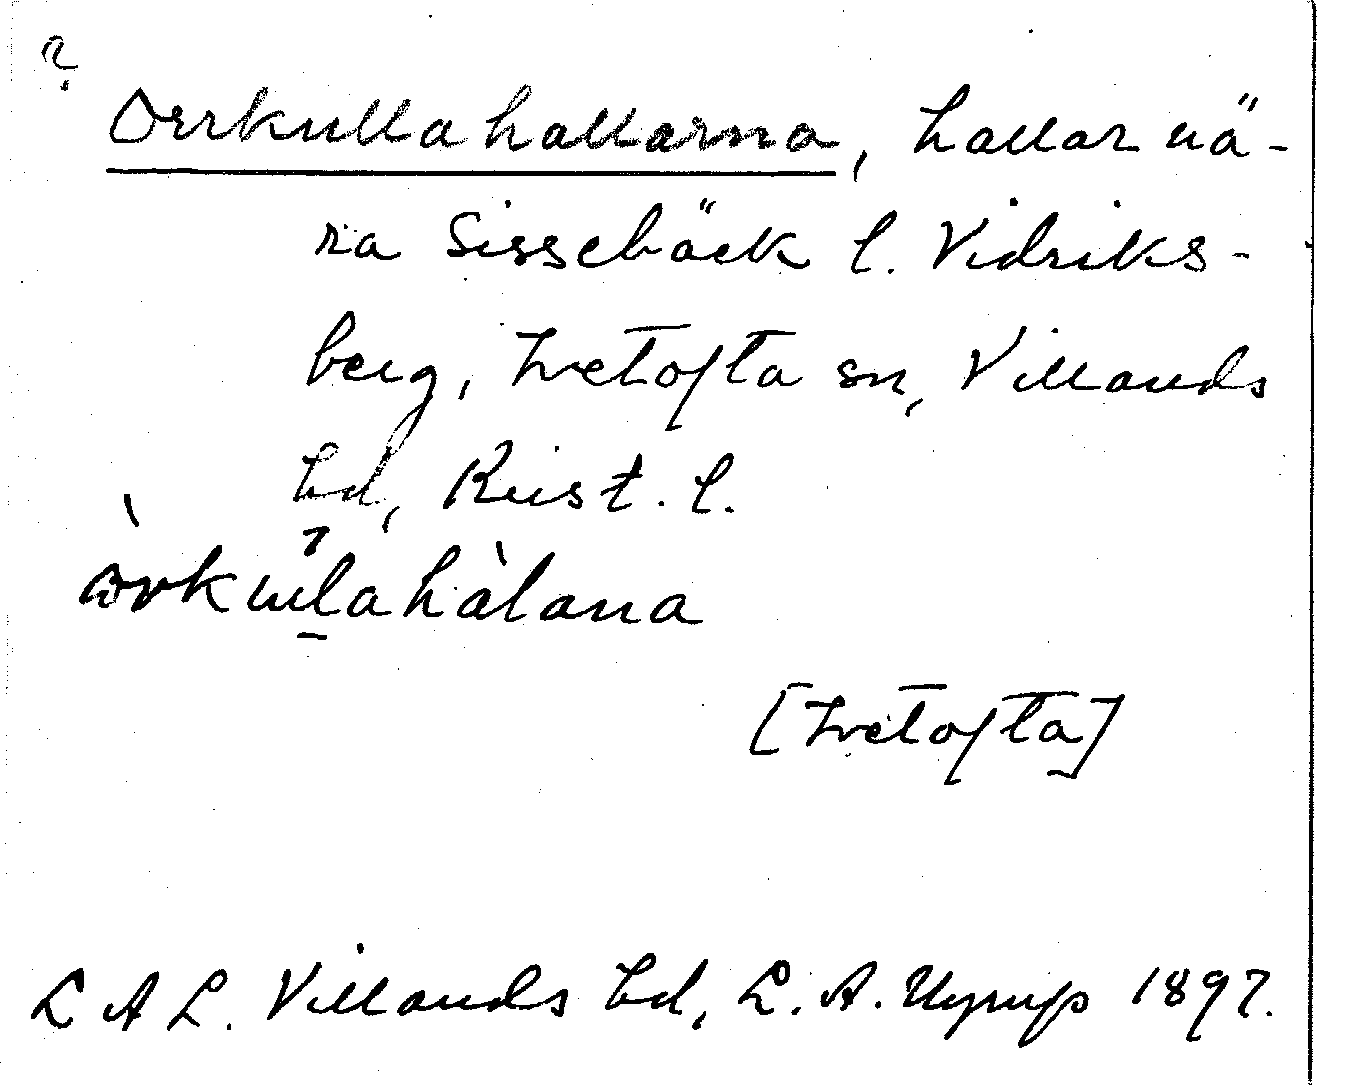 ?
Orrkullahallarna, hallar nä-
ra Sissebäck l. Vidriks-
berg, Ivetofta sn, Villands
hd, Krist. l.
òrkulahàlana
[Ivetofta]
L A L. Villands hd, L. A. Nyrup 1897.